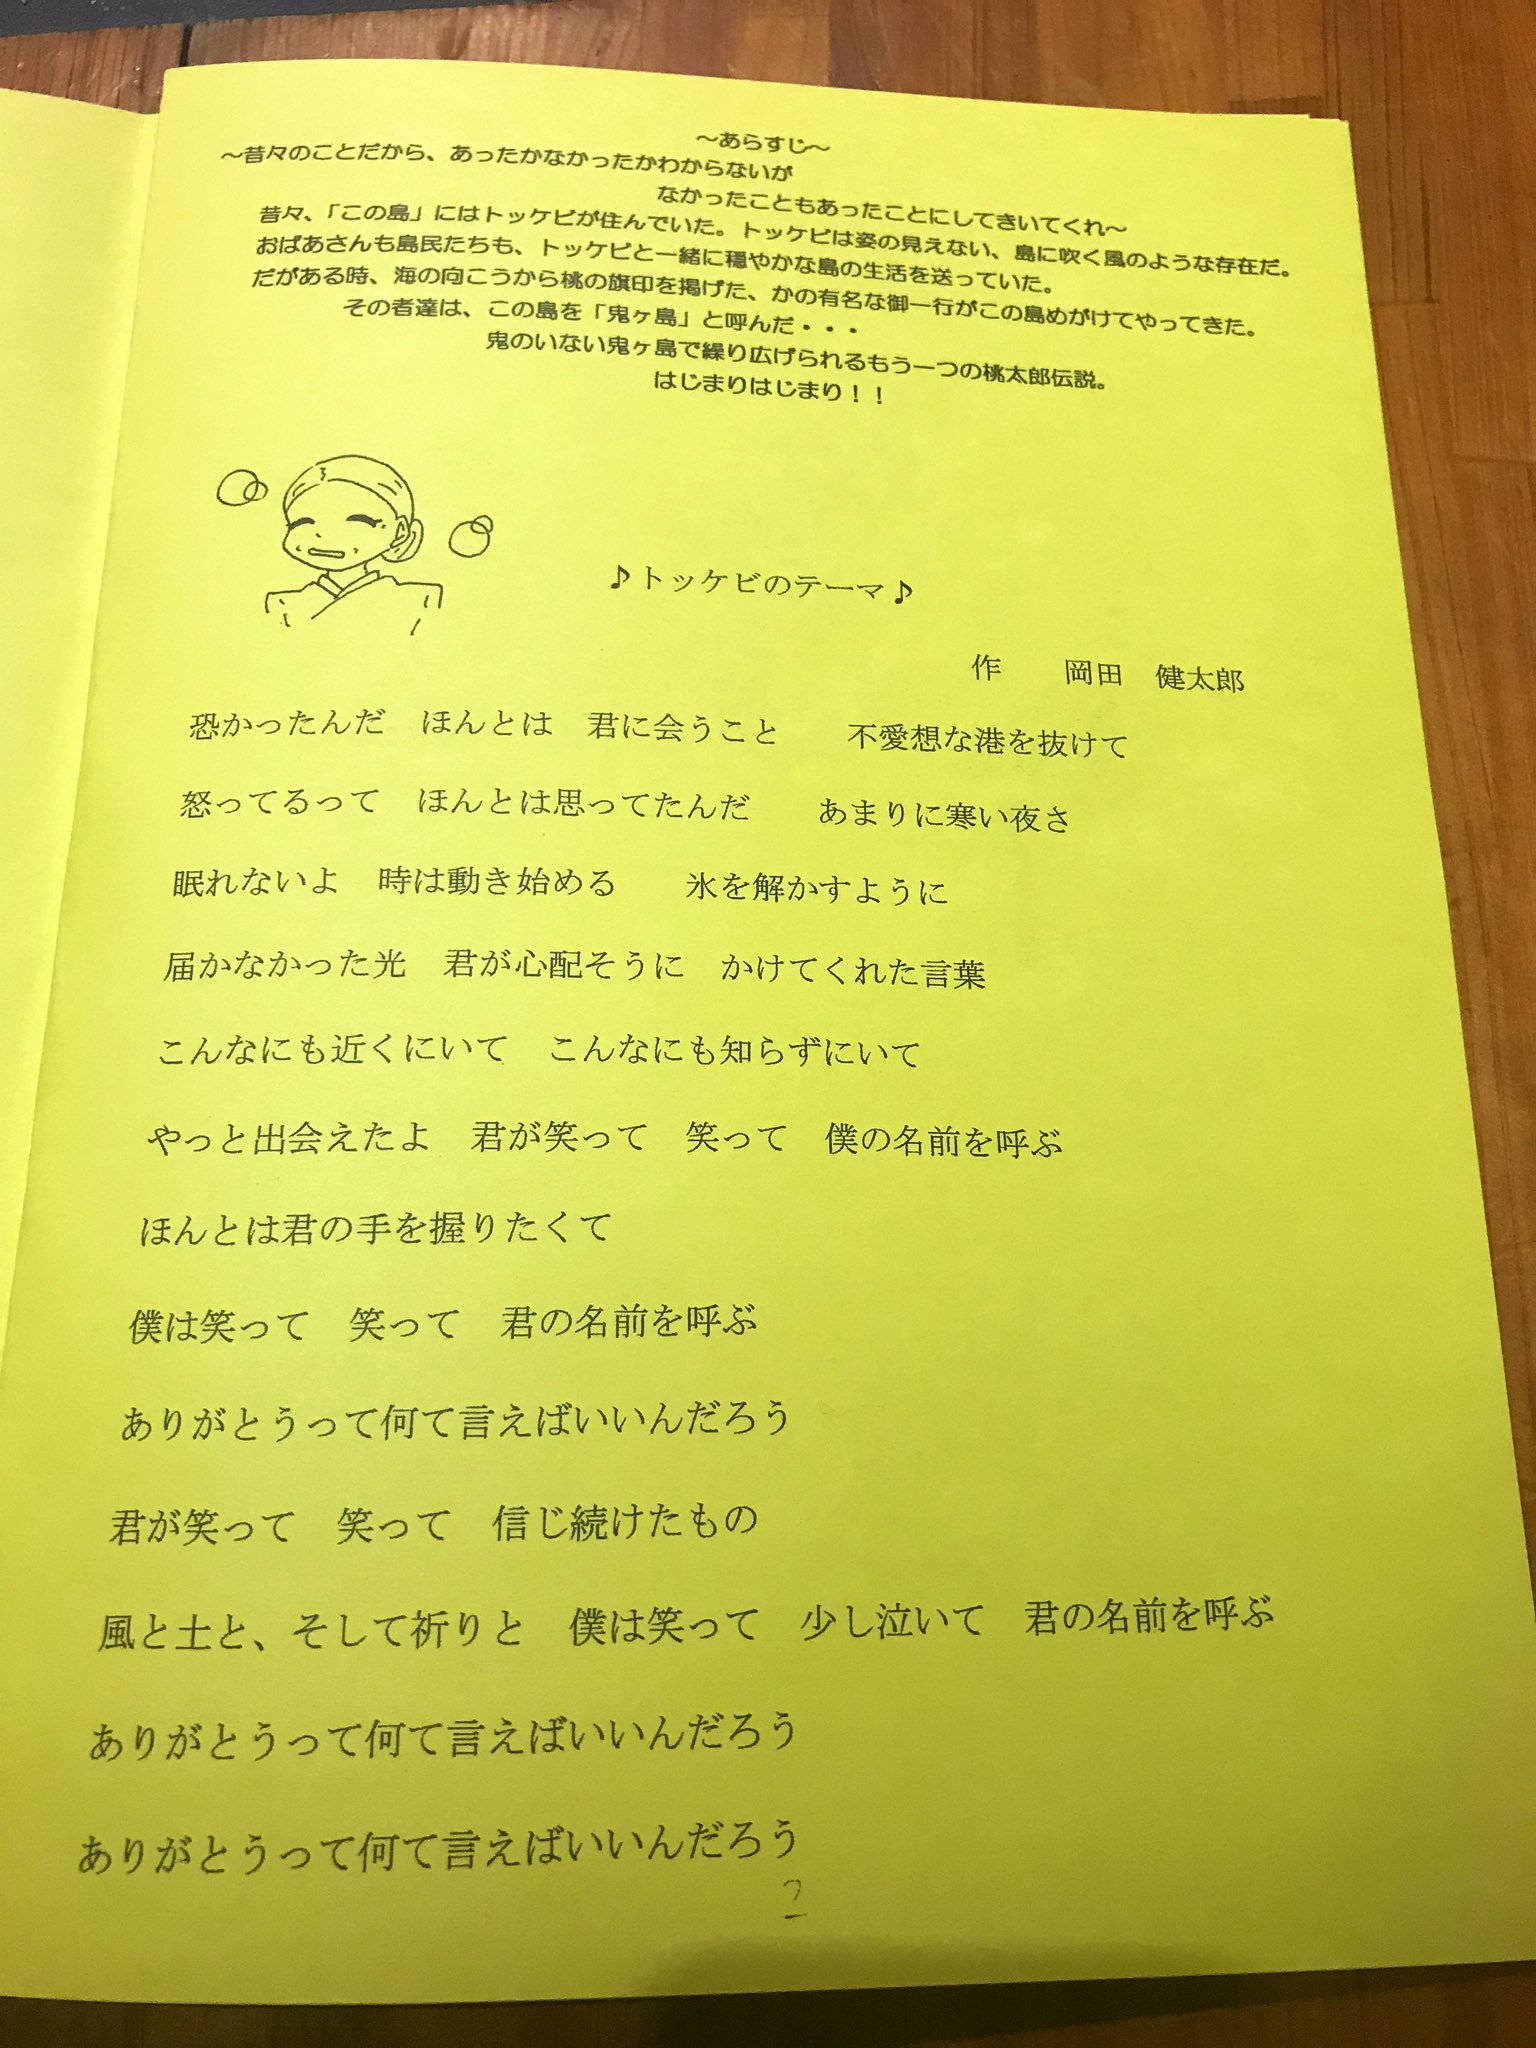 ～あらすじ～
～昔々のことだから、あったかなかったかわからないが
なかったこともあったことにしてきいてくれ～
昔々、「この島」にはトッケビが住んでいた。トッケビは姿の見えない、島に吹く風のような存在だ。
おばあさんも島民たちも、トッケビと一緒に穏やかな島の生活を送っていた。
だがある時、海の向こうから桃の旗印を掲げた、かの有名な御一行がこの島めがけてやってきた。
その者達は、この島を「鬼ヶ島」と呼んだ・・・
鬼のいない鬼ヶ島で繰り広げられるもう一つの桃太郎伝説。
はじまりはじまり！！
♪トッケビのテーマ♪
作　　岡田　健太郎
恐かったんだ　ほんとは　君に会うこと　　不愛想な港を抜けて
怒ってるって　ほんとは思ってたんだ　　あまりに寒い夜さ
眠れないよ　時は動き始める　　氷を解かすように
届かなかった光　君が心配そうに　かけてくれた言葉
こんなにも近くにいて　こんなにも知らずにいて
やっと出会えたよ　君が笑って　笑って　僕の名前を呼ぶ
ほんとは君の手を握りたくて
僕は笑って　笑って　君の名前を呼ぶ
ありがとうって何て言えばいいんだろう
君が笑って　笑って　信じ続けたもの
風と土と、そして祈りと　僕は笑って　少し泣いて　君の名前を呼ぶ
ありがとうって何て言えばいいんだろう
ありがとうって何て言えばいいんだろう
2